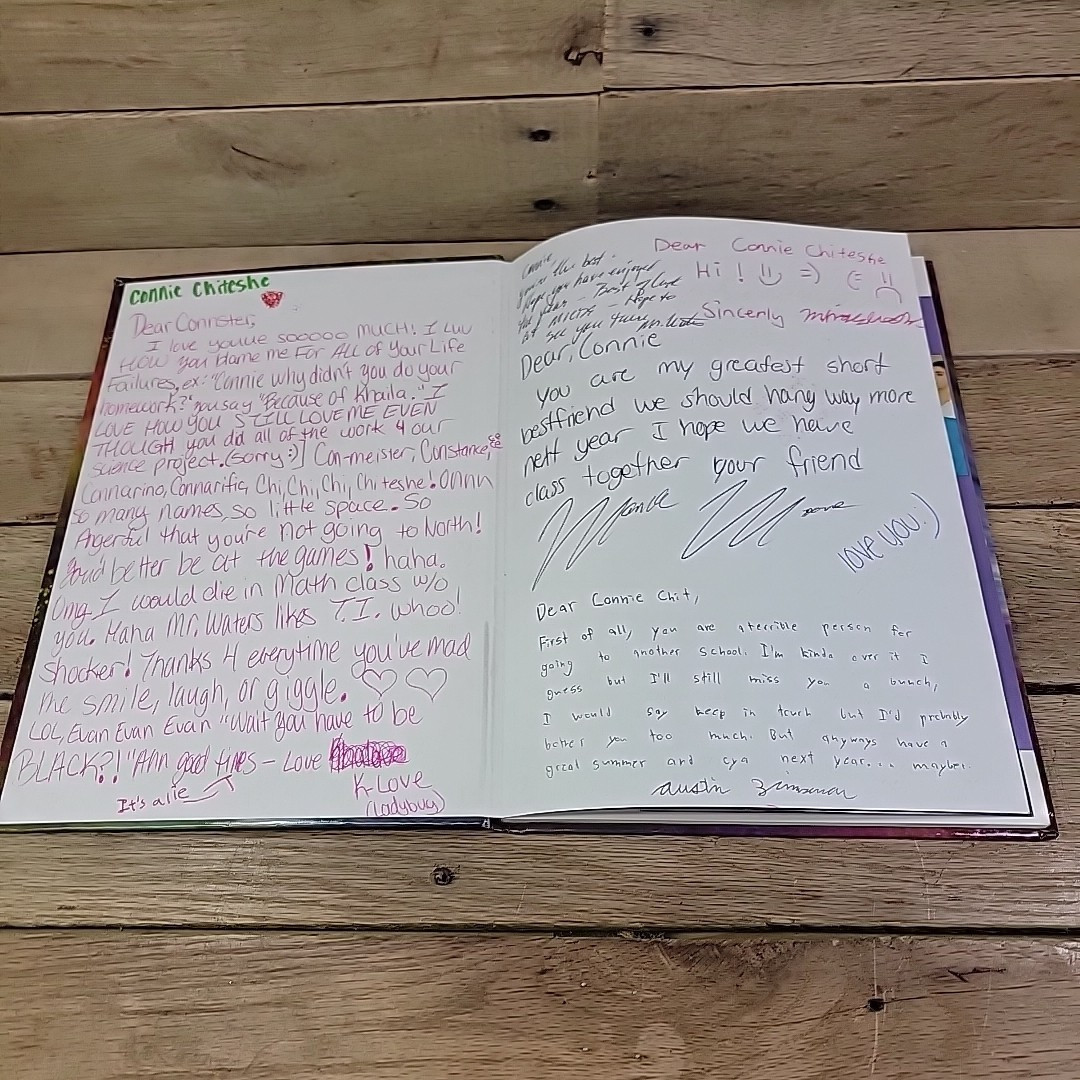 Connie Chiteshe
Dear Connster,
I love youue sooooo MUCH! I LUV
HOW You blame me FOR ALL of Your Life
Failures, ex: "Connie why didn't you do your
homework?" You say "Because of Khaila." I
LOVE HOW YOU STILL LOVE ME EVEN
THOUGH you did all of the work 4 our
science project. (Sorry :)] Con-meister, Constance,
Connarino, Connarific, Chi, Chi, Chi, Chiteshe! Ohhh
so many names, so little space. So
Angerful that you're not going to North!
You'd better be at the games! haha.
Omg I would die in Math class w/o
you. Haha Mr. Waters likes T.I. whoo!
Shocker! Thanks 4 everytime you've mad
me smile, laugh, or giggle.
LOL, Evan Evan Evan "Wait you have to be
BLACK?!" Ahh good times - Love
It's a lie
K-Love
(ladybug)
Connie,
You're the best.
I hope you have enjoyed
the year - Best of luck
at North - Hope to
see you there
Dear Connie Chiteshe
Hi! =)
Sincerly
Dear, Connie
You are my greatest short
bestfriend we should hang way more
neht year I hope we have
class together your friend
love you :)
Dear Connie Chit,
First of all, you are a terrible person for
going to another school. I'm kinda over it I
guess but I'll still miss you a bunch,
I would say keep in touch but I'd probably
bother you too much. But anyways have a
great summer and cya next year... maybe.
Austin